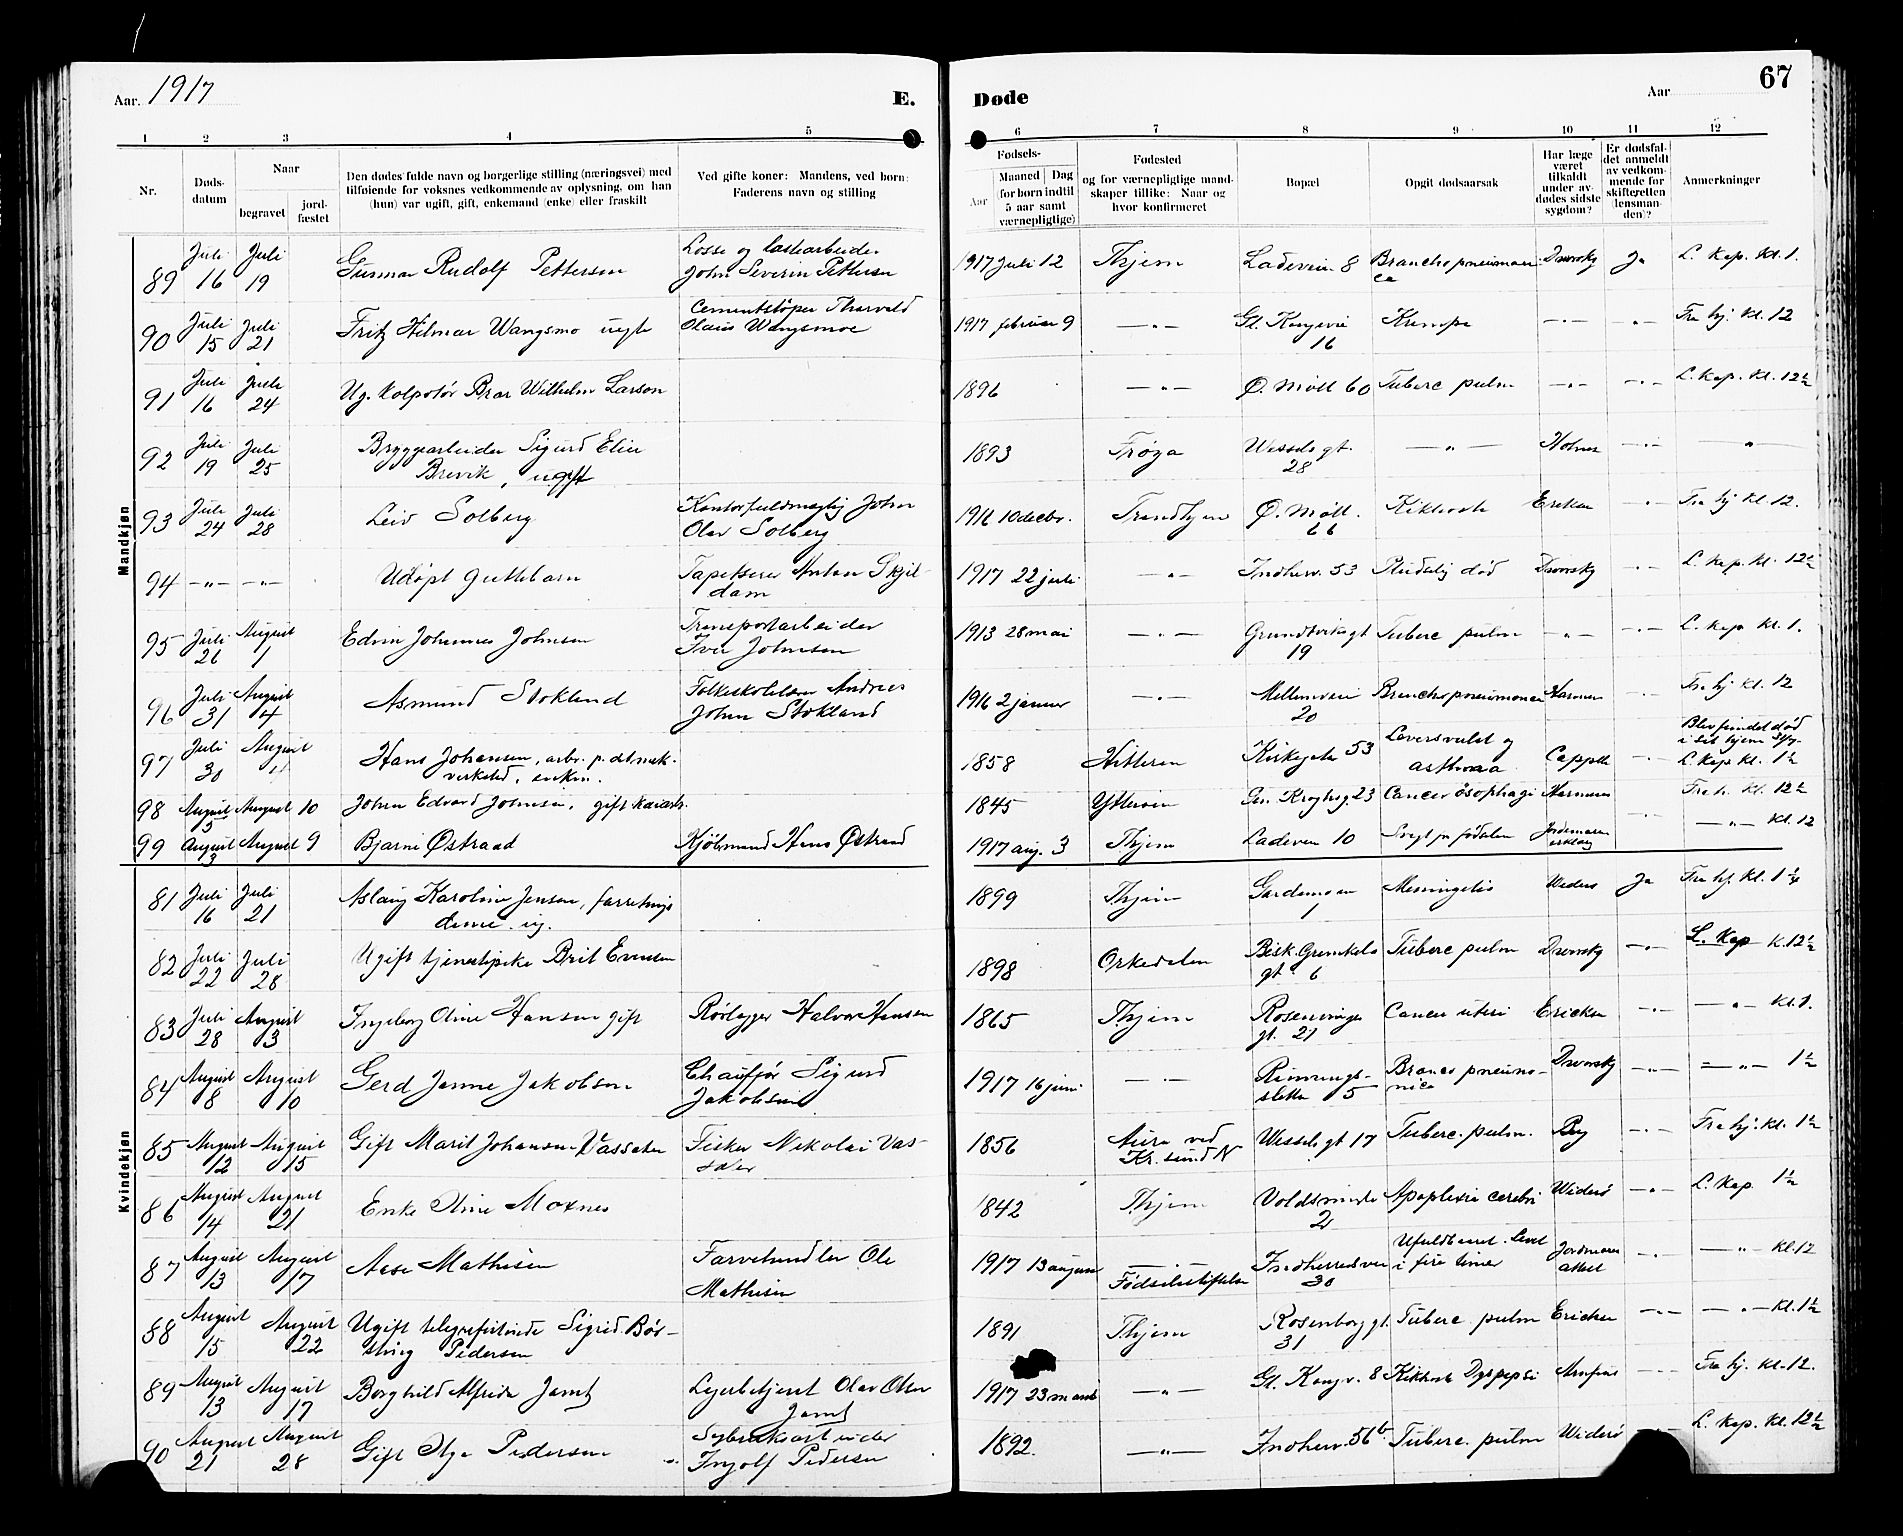 Aar. 1917 E. Døde Aar 67
1 2 3 4 5 6 7 8 9 10 11 12
Nr. Døds-datum Naar begravet jord-fæstet Den dødes fulde navn og borgerlige stilling (næringsvei) med tilføiende for voksnes vedkommende av oplysning, om han (hun) var ugift, gift, enkemand (enke) eller fraskilt Ved gifte koner: Mandens, ved børn: Faderens navn og stilling Fødsels- Aar Maaned Dag (for born indtil 5 aar samt værnepligtige) Fødested og for værnepligtige mand-skaper tillike: Naar og hvor konfirmeret Bopæl Opgit dødsaarsak Har læge været tilkaldt under av-dødes sidste sygdom? Er dødsfal-det anmeldt av vedkom-mende for skifteretten (lensman-den)? Anmerkninger
Mandkjøn
89 Juli 16 Juli 19 Gunnar Rudolf Pettersen Losse og lastearbeider John Severin Pettersen 1917 Juli 12 Thjem Ladeveien 8 Bronchopneumonica Dvorsky Ja L. Kap. Kl. 1.
90 Juli 15 Juli 21 Fritz Hilmar Wangsmo ugte Cementstøper Thorvald Olaus Wangsmoe 1917 februar 9 —"— Gl. Kongevei 16 Krampe —"— —"— Fra hj. Kl. 12
91 Juli 16 Juli 24 Ug. Kolportør Brar Wilhelm Larson 1896 —"— Ø. Møll 60 Tuberc pulm —"— —"— L. Kap. Kl. 12½
92 Juli 19 Juli 25 Bryggearbeider Sigurd Elier Brevik, ugift 1893 Frøya Wessels gt. 28 —"— Holmen —"— —"—
93 Juli 24 Juli 28 Leiv Solberg Kontorfuldmægtig John Olav Solberg 1916 10 decbr. Trondhjem Ø. Møll. 66 Kikhoste Eriksen —"— Fra hj Kl. 12.
94 —"— —"— Udøpt guttebarn Tapetserer Anton Skjeldam 1917 22 juli —"— Indherv. 53 Pludselig død Dvorsky —"— L. Kap. Kl. 12½
95 Juli 26 August 1 Edvin Johannes Johnsen Transportarbeider Iver Johnsen 1913 28 mai —"— Grundtvigs gt 19 Tuberc pulm —"— —"— L. Kap Kl. 1.
96 Juli 31 August 4 Asmund Stokland Folkeskolelærer Andreas Johan Stokland 1916 2 januar —"— Mellemveien 20 Bronchopneumonica —"— Fra hj Kl. 12
97 Juli 30 August 4 Hans Johansen, arb. p. det mek. verksted, enkem. 1858 Hitteren Kirkegaten 53 Leversvulst og asthma Cappelen —"— Blev fundet død i sit hjem 30/7. L. Kap. Kl. 1½
98 August 3 August 10 Johan Edvard Johnsen, gift 1845 Ytterøen Gen. Kroghsg 23 Cancer øsophagi Fra h. Kl. 12½
99 August 3 August 9 Bjarne Østraad Kjøbmand Hans Østraad 1917 aug. 3 Thjem Ladeveien 10 Svagt fra fødselen Jordemoren —"— —"— Kl. 12
Kvindekjøn
81 Juli 16 Juli 21 Aslaug Karoline Jensen, forretningsdame. ug. 1899 Thjem Gardemoen 1 Meningitis Ja Fra hj. Kl. 1¼
82 Juli 22 Juli 28 Ugift tjenestepike Brit Evensen 1898 Orkedalen Bisk. Grimkels gt. 6 Tuberc pulm Dvorsky —"— L. Kap K. 12½
83 Juli 28 August 3 Ingeborg Oline Hansen gift Rørlægger Halvor Hansen 1865 Thjem Rosenvinges gt. 21 Cancer uteri Ericksen —"— —"— Kl. 1.
84 August 8 August 10 Gerd Janne Jakobsen Chauffør Sigurd Jakobsen 1917 16 juni —"— Rønningsletta 5 Bronco pneumonica Dvorsky —"— —"— 1½
85 August 12 August 15 Gift Marit Johansen Vassaten Fisker Nikolai Vas- 1856 Aure ved Kr. sund N Wessels gt 17 Tuberc. pulm. Berg —"— Fra hj. Kl. 1½
86 August 14 August 21 Enke Oline Moxnes 1842 Thjem Voldsminde 2 Apoplexia cerebri Widerö —"— L. Kap. 1½
87 August 13 August 17 Aase Mathisen Farvehandler Ole Mathisen 1917 13 august Fødselsstiftelsen Indherredsvei 30 Ufuldbaaret. Levet i fire timer Jordmorens attest —"— —"— Kl. 12
88 August 15 August 22 Ugift telegrafistinde Sigrid Bør-sting Pedersen 1891 Thjem Rosenborg gt. 31 Tuberc. pulm Ericksen —"— —"— Kl. 1½
89 August 13 August 17 Borghild Alfrida Jamt Leiebetjent Olav Olsen Jamt 1917 23 marts —"— Gl. Kongv. 8 Kikhoste Dyspepsi —"— Fra hj. Kl. 12.
90 August 21 August 28 Gift Olga Pedersen Sybruksarbeider Ingolf Pedersen 1892. —"— Indherv. 56b Tuberc. pulm Widerö —"— L. Kap. Kl. 12½